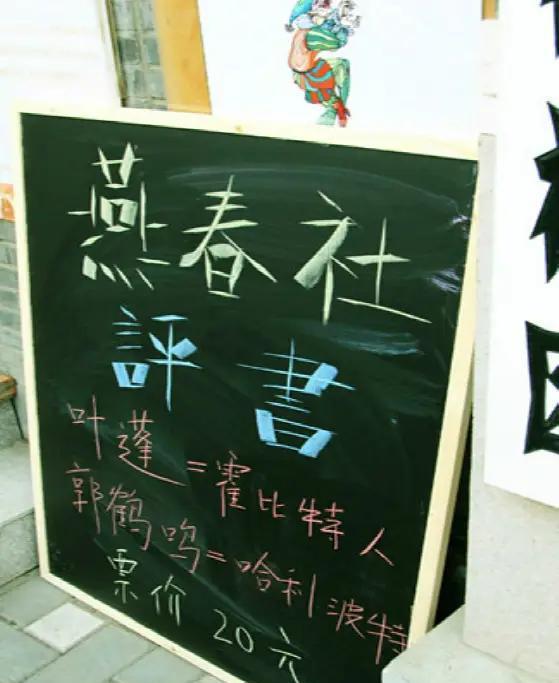 燕春社
評書
叶蓬=霍比特人
郭鹤鸣=哈利波特
票价20元